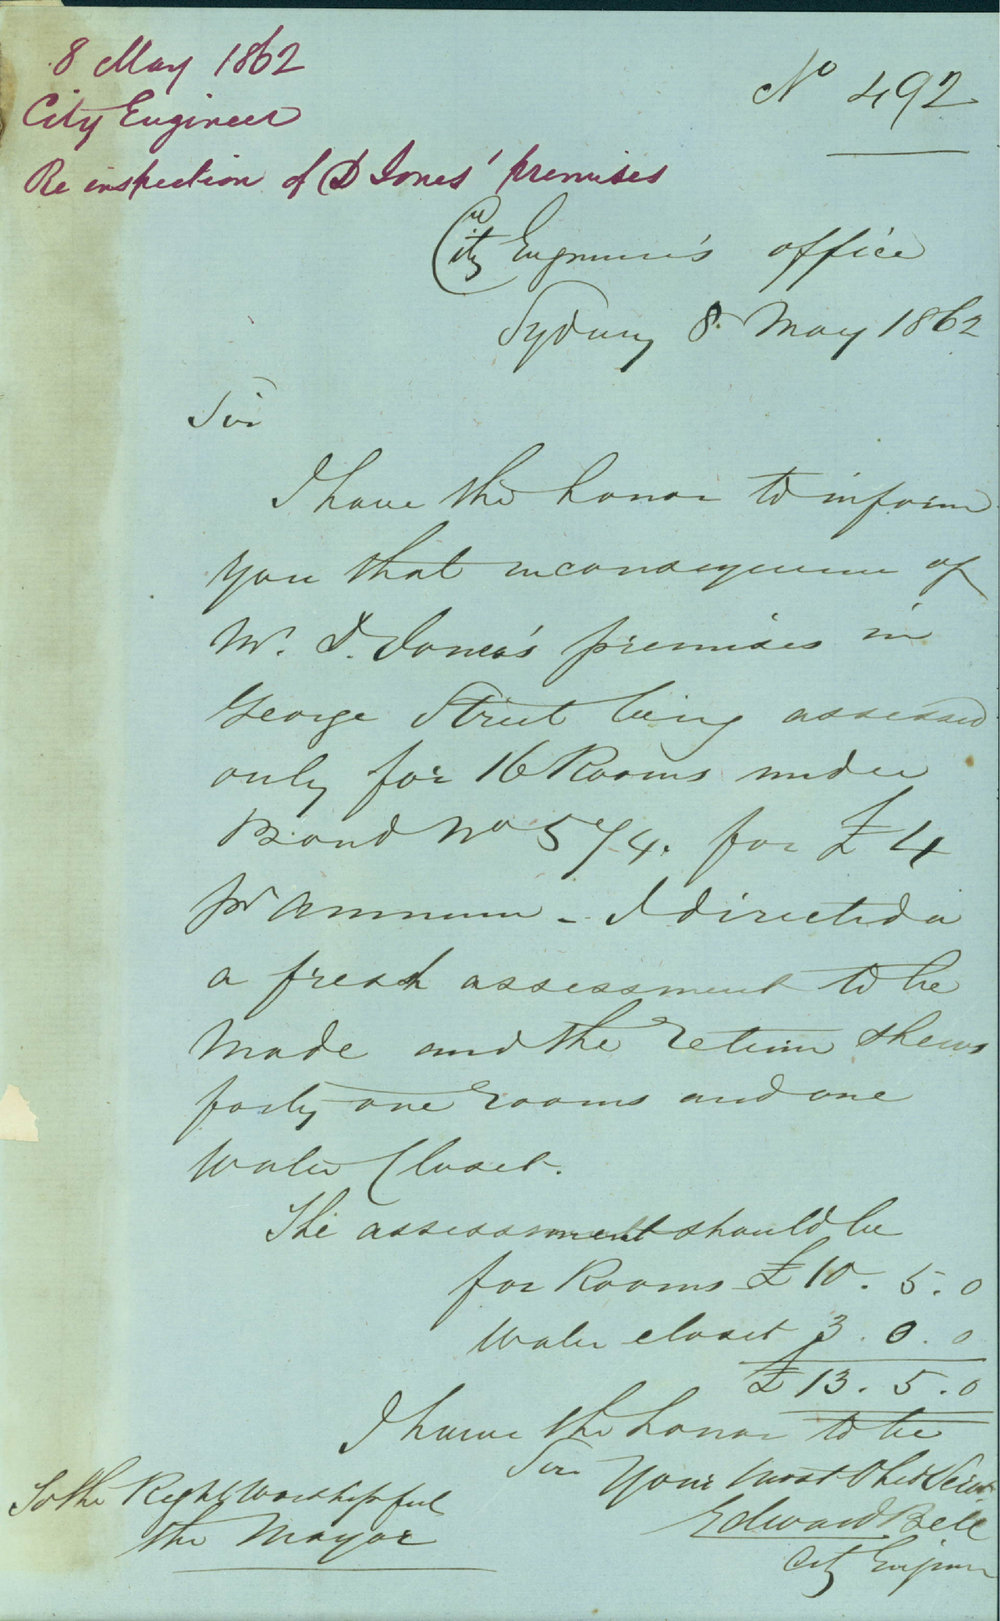 8 May 1862
City Engineer
Re inspection of D Jones' premises
No 492
City Engineer's office
Sydney 8 May 1862
Sir
I have the honor to inform
you that in consequence of
Mr. D. Jones's premises in
George Street being assessed
only for 16 Rooms under
Bond No 574. for £4
pr Annum - I directed a
a fresh assessment to be
Made and the return shews
forty one rooms and one
Water Closet.
The assessment should be
for Rooms £10. 5. 0
Water closet 3. 0. 0
£13. 5. 0
I have the honor to be
Sir
Your Most Obed Servt
Edward Bell
City Engineer
To the Right Worshipful
the Mayor